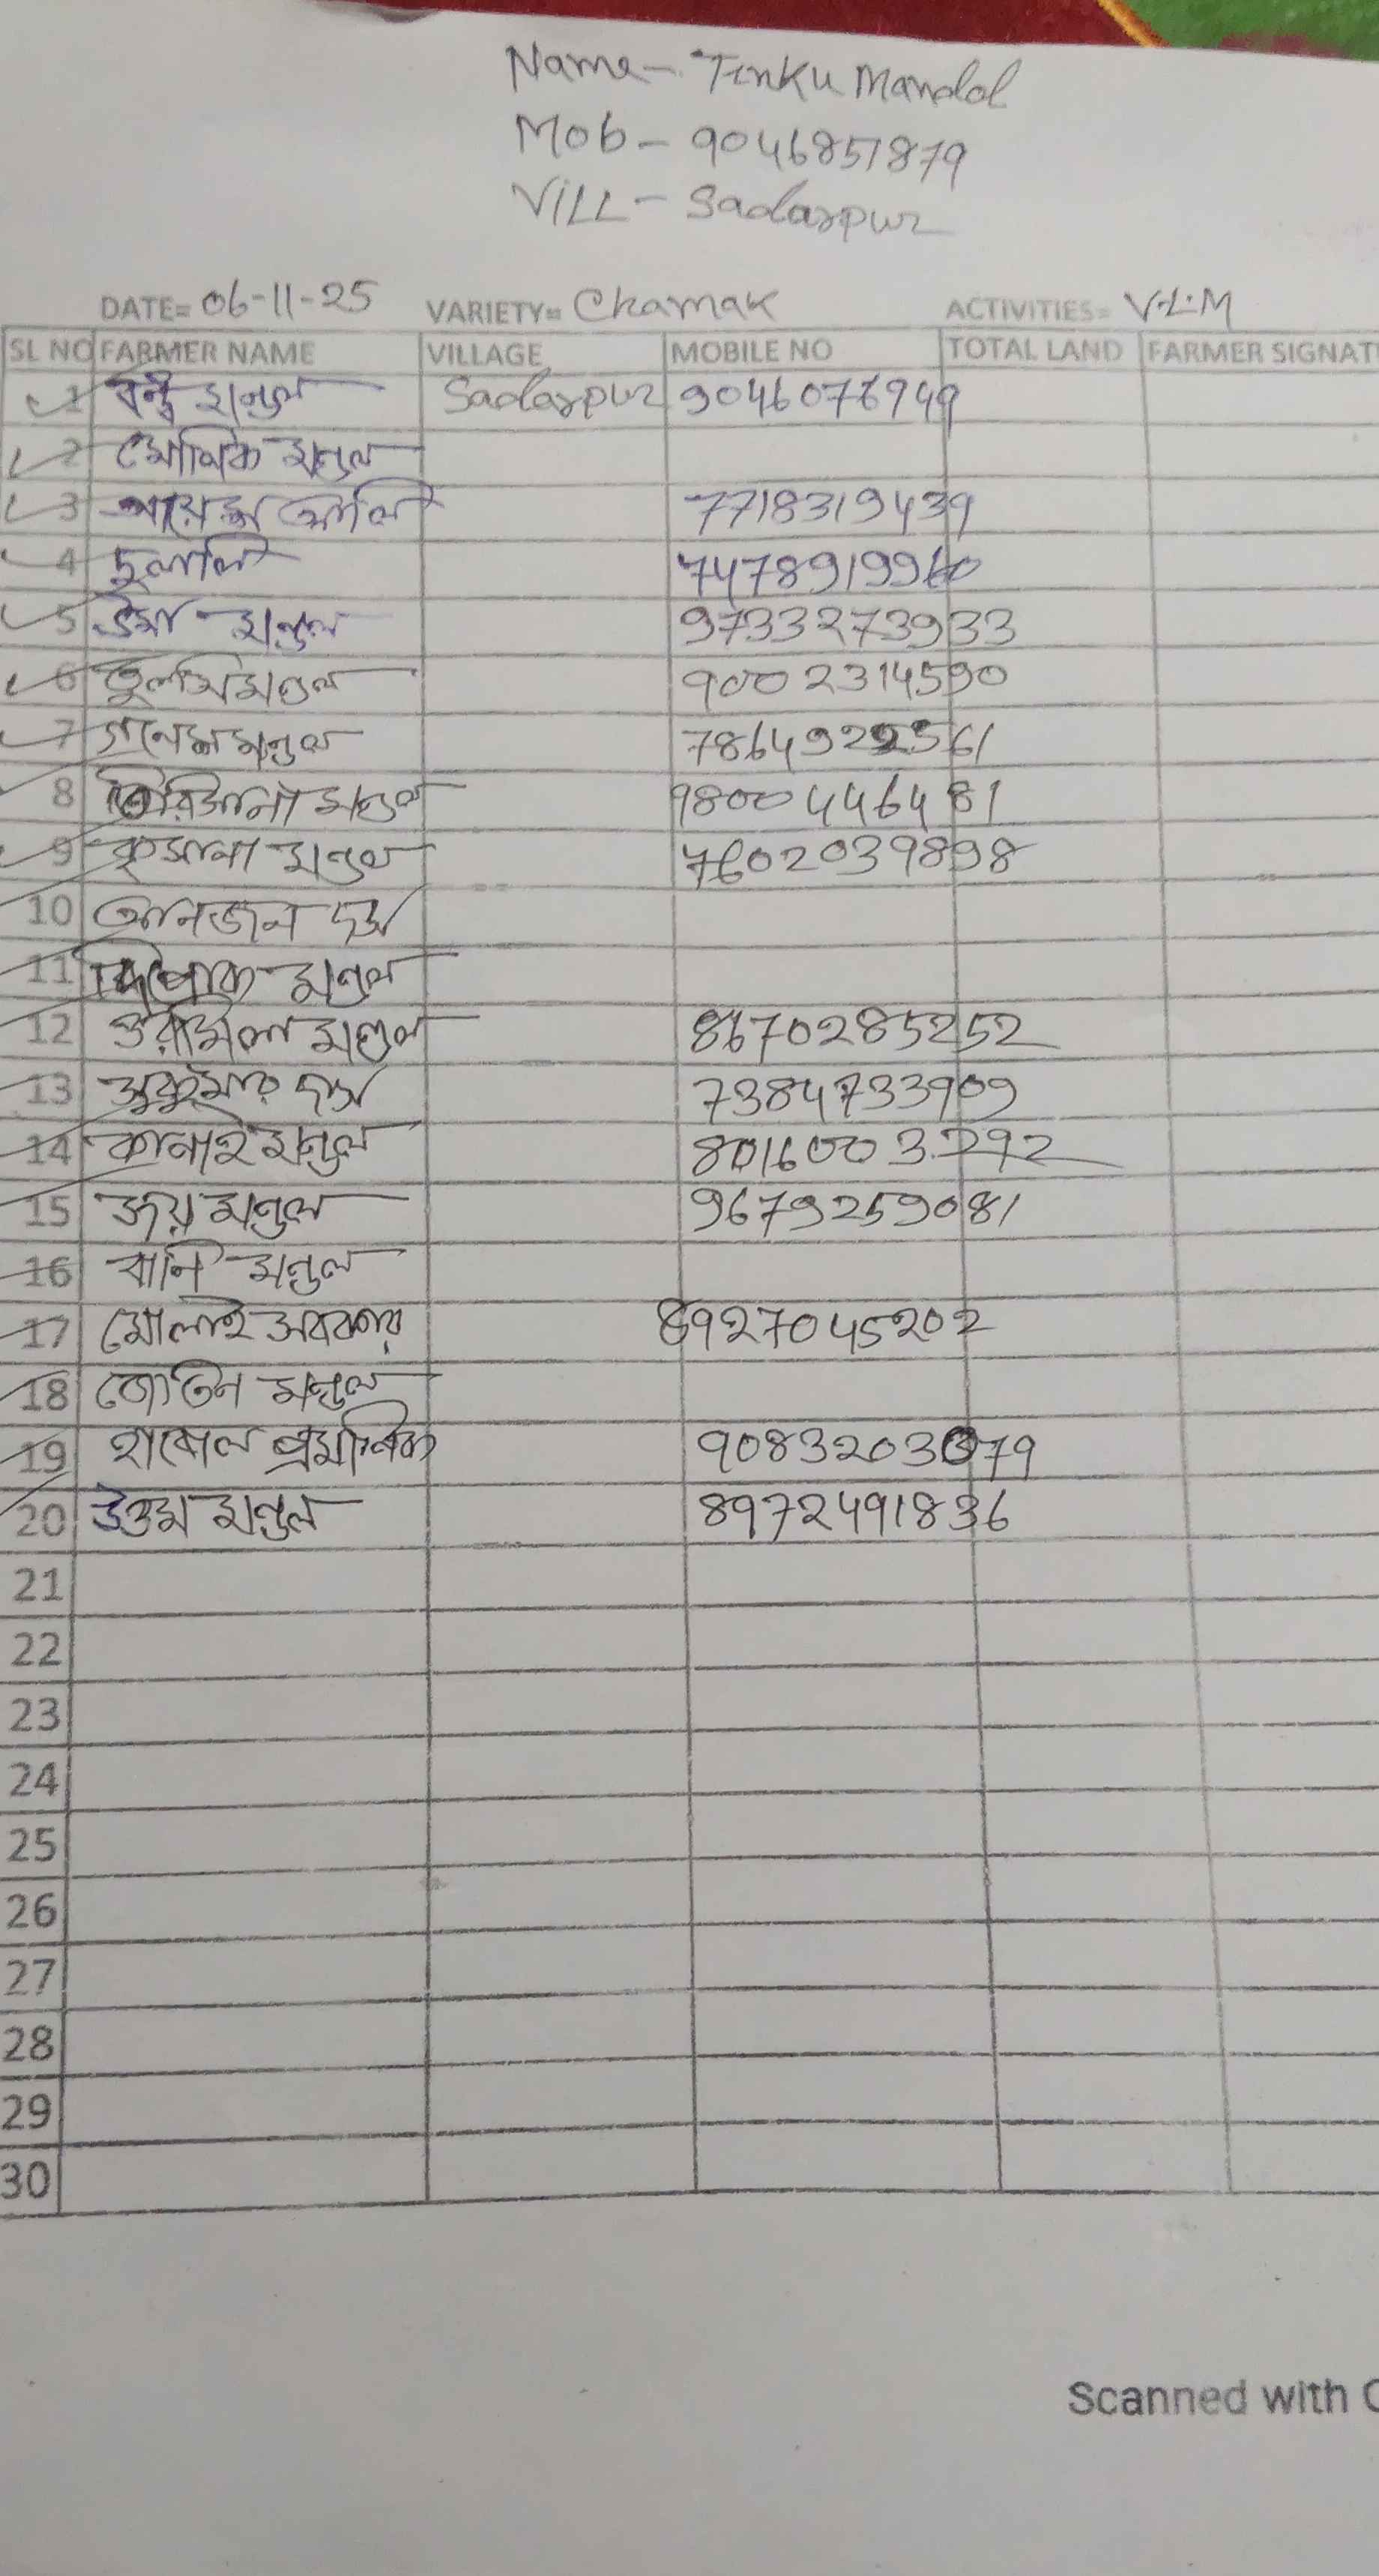 Name - Tinku Mandal
Mob - 9046851879
VILL - Sadarpur
DATE= 06-11-25 VARIETY= Chamak ACTIVITIES= V.L.M
SL NO FARMER NAME VILLAGE MOBILE NO TOTAL LAND FARMER SIGNAT
1 মন্ডল Sadarpur 9046076949
2 মন্ডল
3 আলি 7718319439
4 দুলালি 7478919960
5 উমা মন্ডল 9733273933
6 তুলসি মণ্ডল 9002314590
7 গনেশ মন্ডল 7864922561
8 মণ্ডল 9800446481
9 মন্ডল 7602039898
10 দাস
11 দিপক মন্ডল
12 উরমিলা মণ্ডল 8670285252
13 সুকুমার দাস 7384733909
14 কানাই মন্ডল 8016003292
15 জয় মন্ডল 9679259081
16 বানি মন্ডল
17 8927045202
18 জোতিন মন্ডল
19 প্রমানিক 9083203079
20 উত্তম মন্ডল 8972491836
21
22
23
24
25
26
27
28
29
30
Scanned with